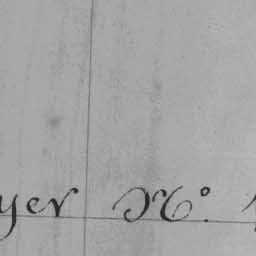 yer Nº.